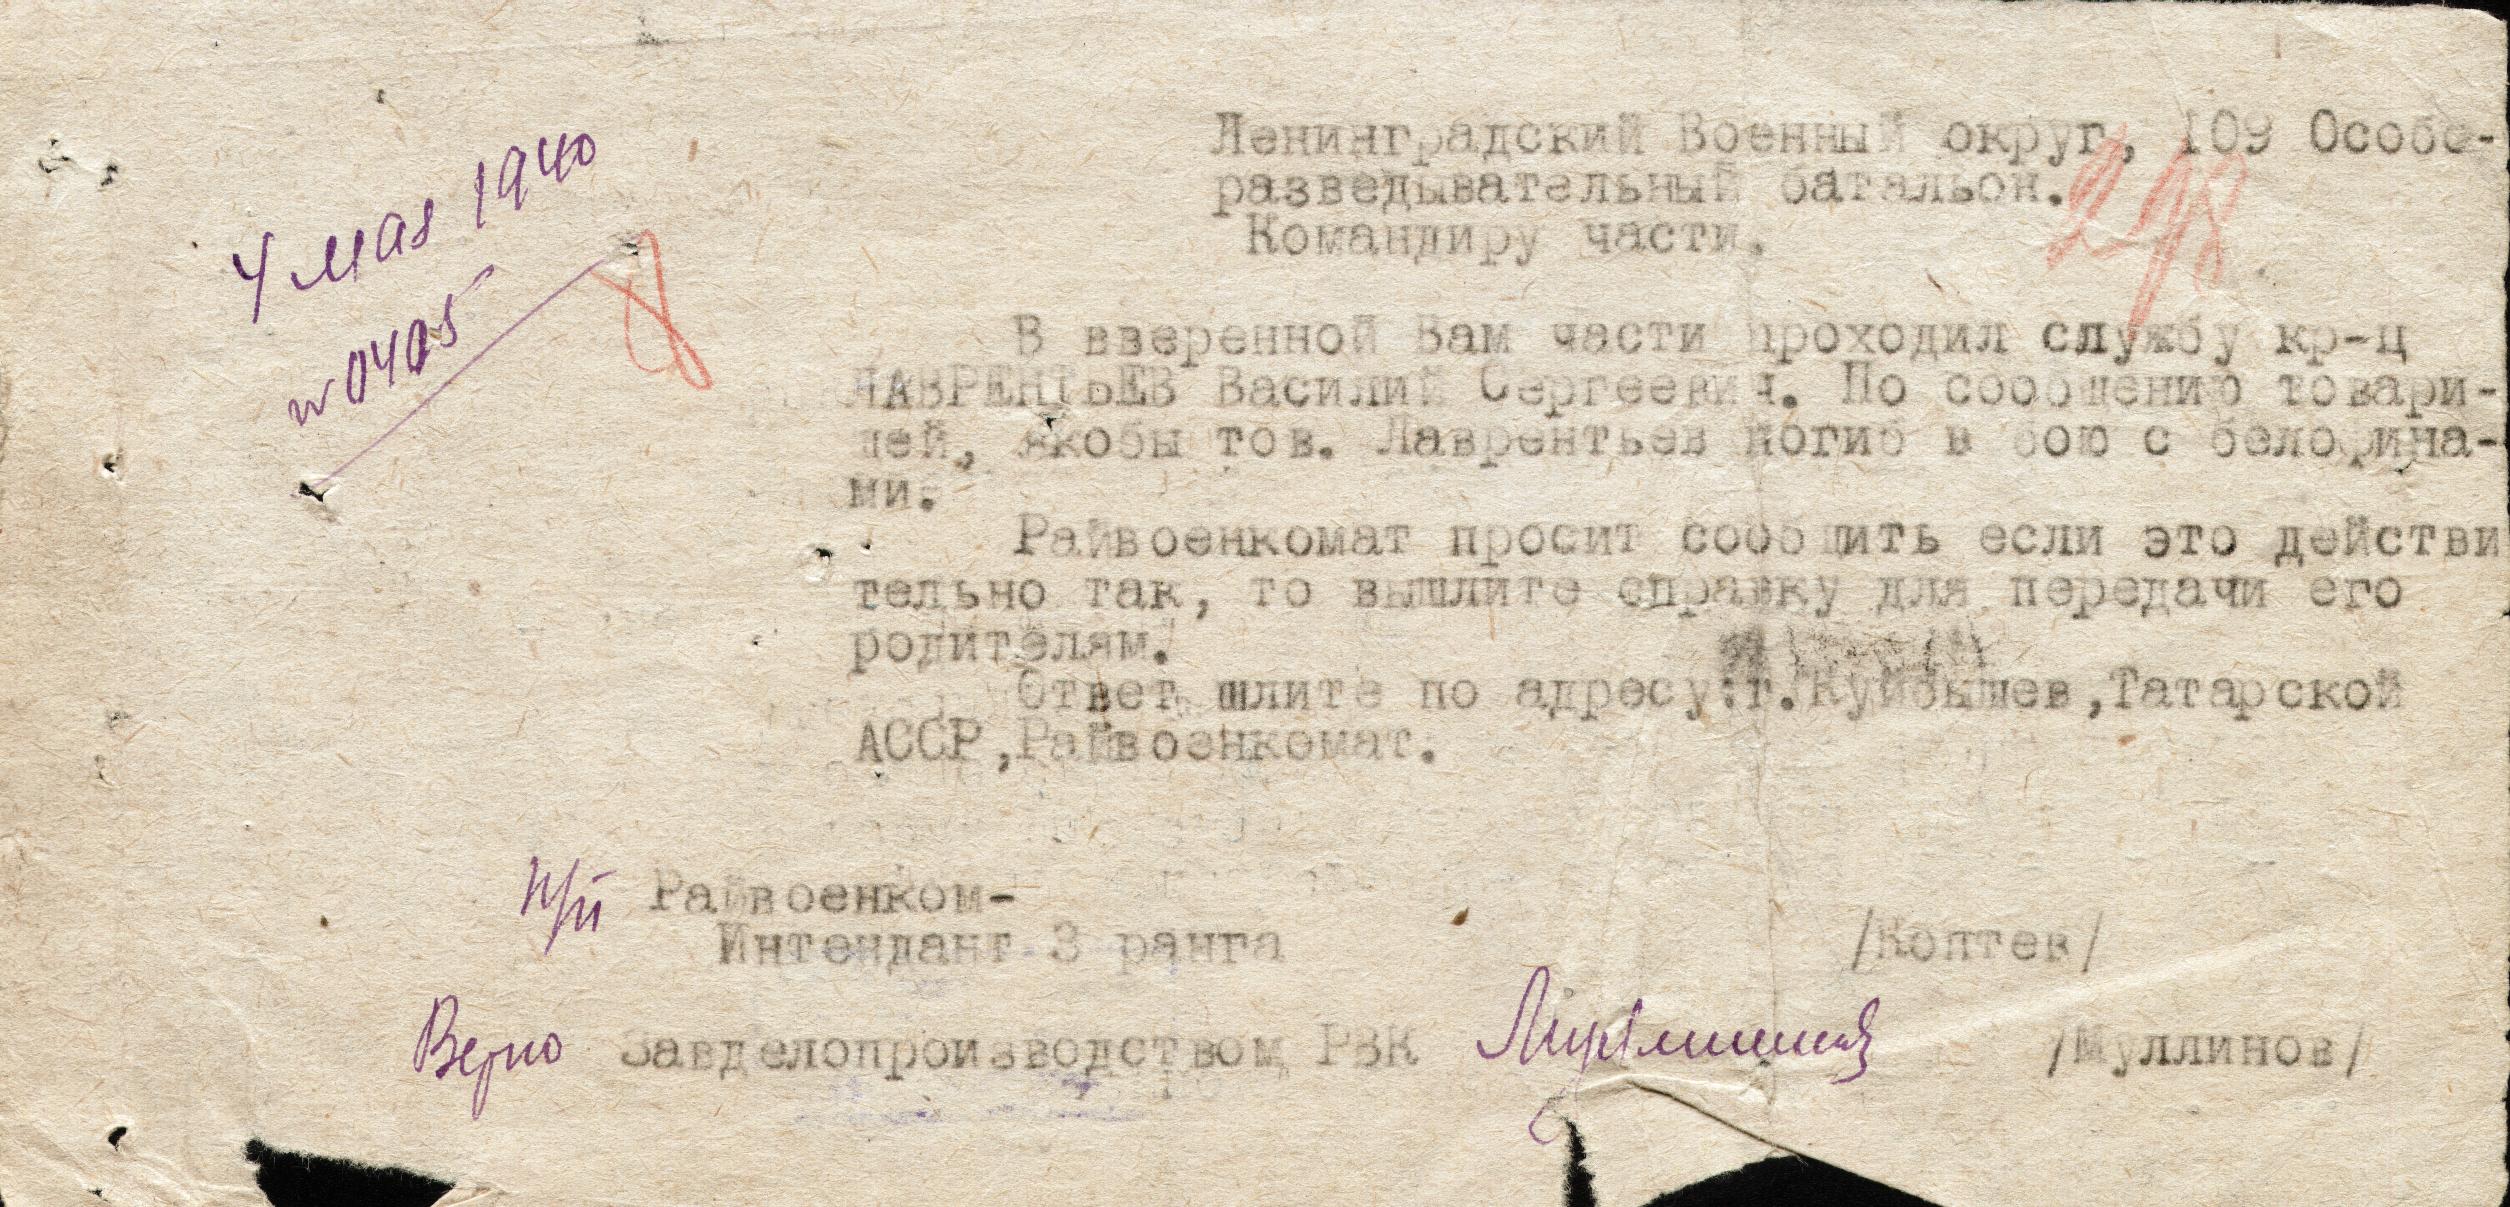 4 мая 1940
№ 0405
8
298
Ленинградский Военный округ, 109 Особо-
разведывательный батальон.
Командиру части.
В вверенной Вам части проходил службу кр-ц
ЛАВРЕНТЬЕВ Василий Сергеевич. По сообщению товари-
щей, якобы тов. Лаврентьев погиб в бою с белофина-
ми.
Райвоенкомат просит сообщить если это действи
тельно так, то вышлите справку для передачи его
родителям.
Ответ шлите по адресу:г.Куйбышев,Татарской
АССР,Райвоенкомат.
п/п Райвоенком-
Интендант 3 ранга /Коптев/
Верно Завделопроизводством РВК /Муллинов/